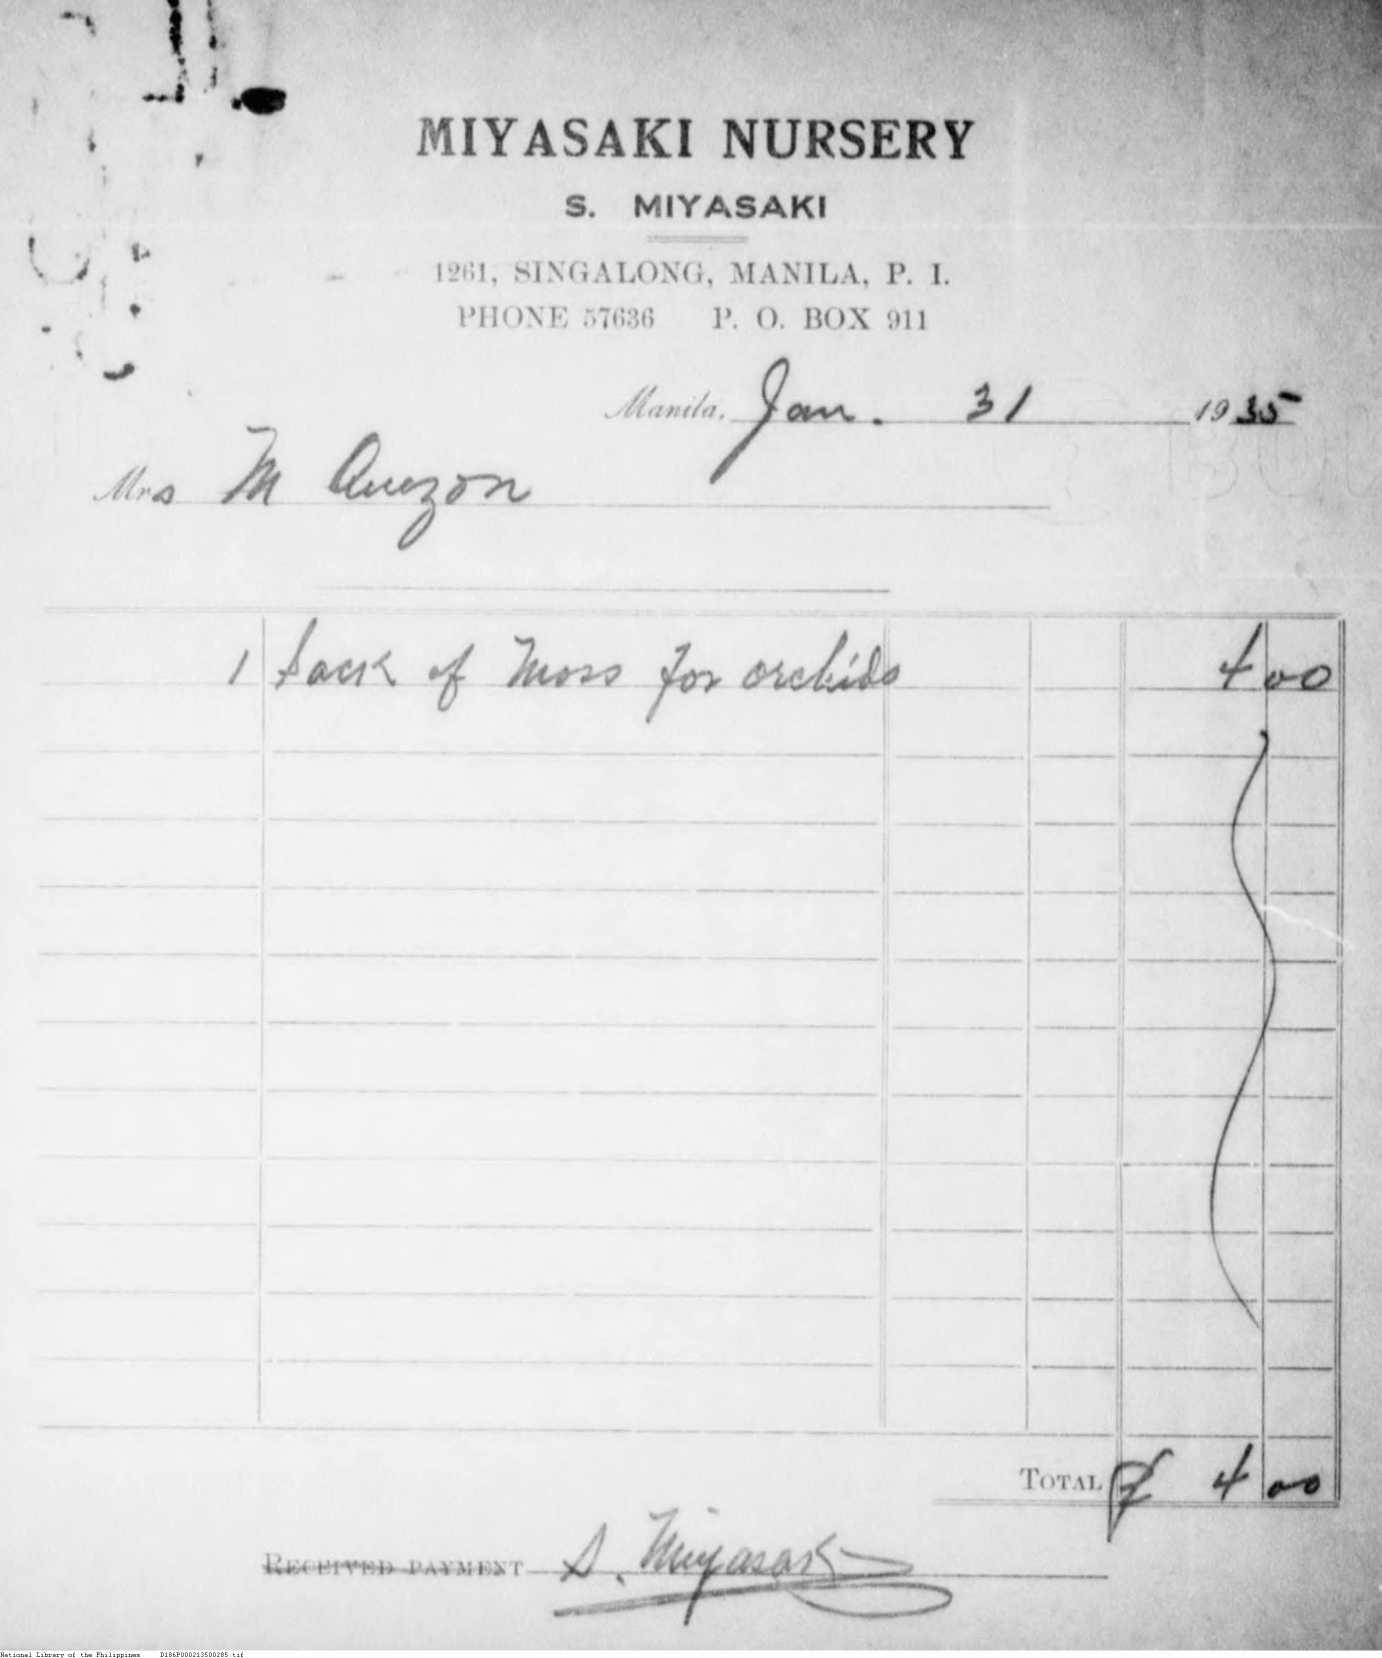 MIYASAKI NURSERY
S. MIYASAKI
1261, SINGALONG, MANILA, P. I.
PHONE 57636 P. O. BOX 911
Manila, Jan. 31 1935
Mrs M Quezon
1 Sack of Moss for orchids 4 00
TOTAL ₱ 4 00
RECEIVED PAYMENT S. Miyasaki
National Library of the Philippines D186P000213500285.tif